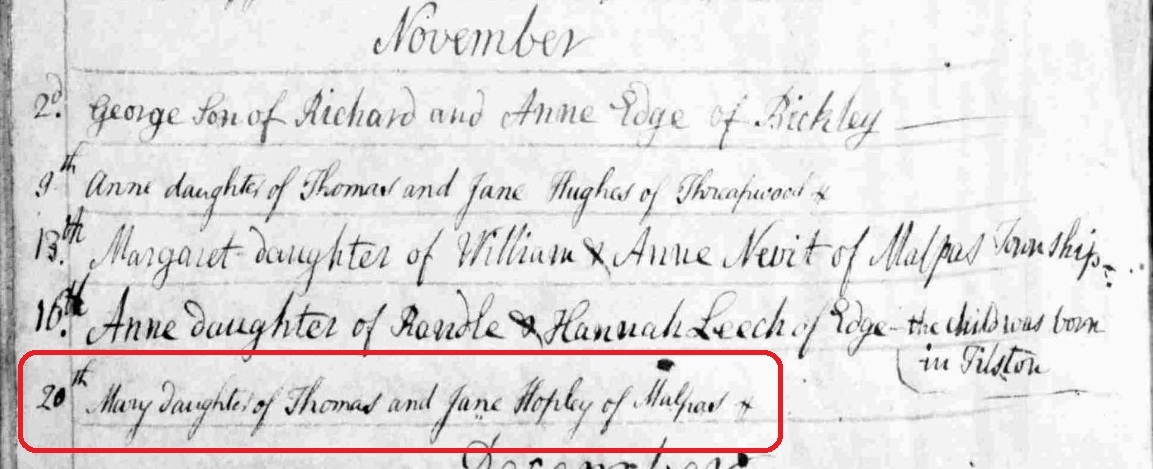 November
2d. George Son of Richard and Anne Edge of Bickley
9.th Anne daughter of Thomas and Jane Hughes of Threapwood +
13.th Margaret daughter of William & Anne Nevit of Malpas Township.
16.th Anne daughter of Randle & Hannah Leech of Edge - the child was born
in Tilston
20th Mary daughter of Thomas and Jane Hopley of Malpas +
December